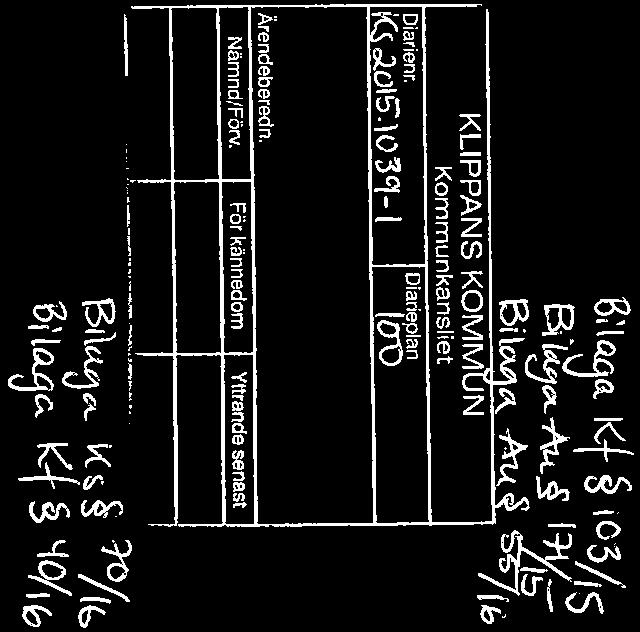 Bilaga Kf § 103/15
Bilaga Au § 171/15
Bilaga Au § 55/16
KLIPPANS KOMMUN
Kommunkansliet
Diarienr. Diarieplan
KS 2015.1039-1 100
Ärendeberedn.
Nämnd/Förv. För kännedom Yttrande senast
Bilaga Ks § 70/16
Bilaga Kf § 40/16